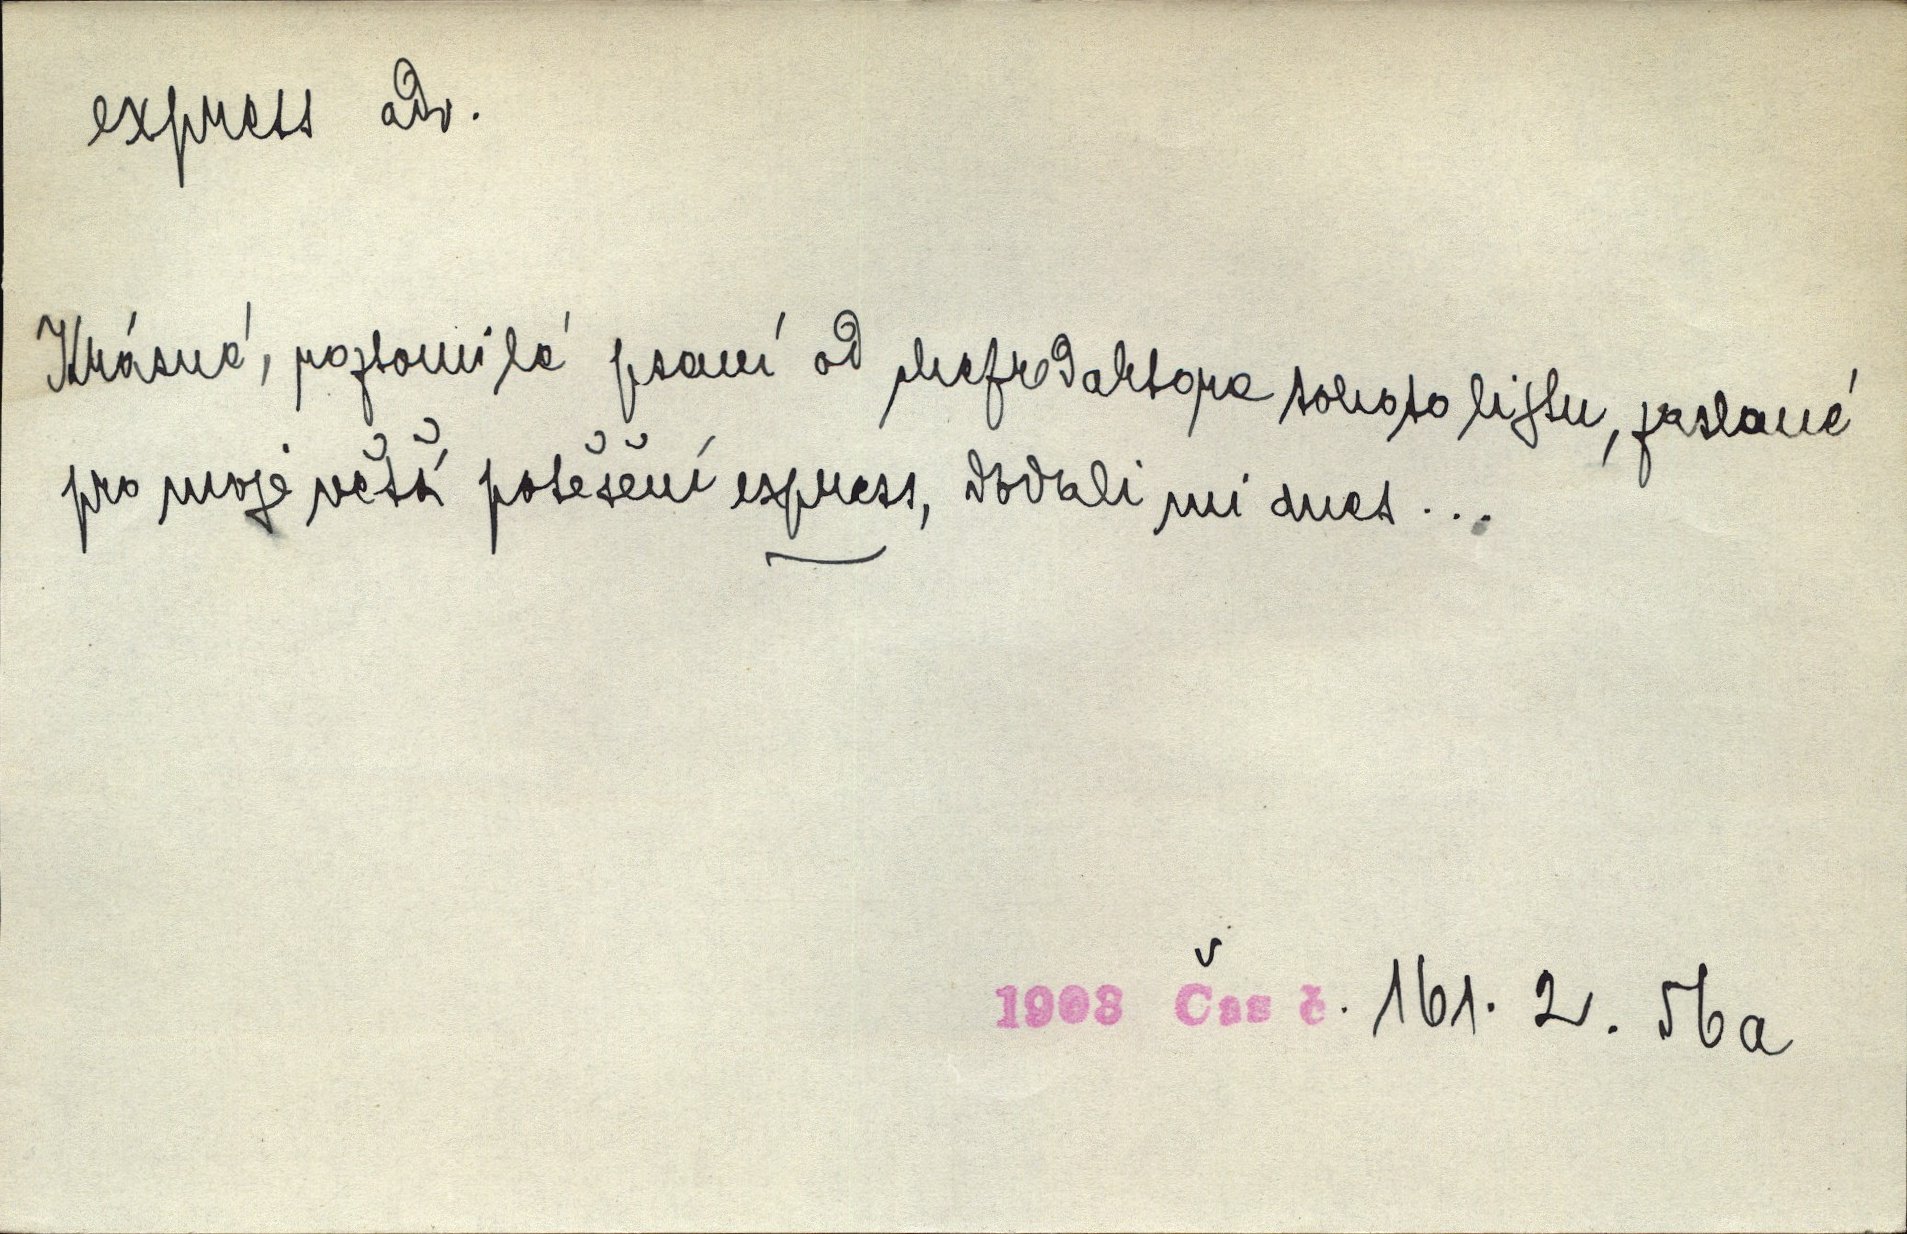 express adv.
Krásné, roztomilé psaní od šefredaktora tohoto listu, zaslané
pro moje větší potěšení express, dodali mi dnes...
1903 Čas č. 161. 2. 56a